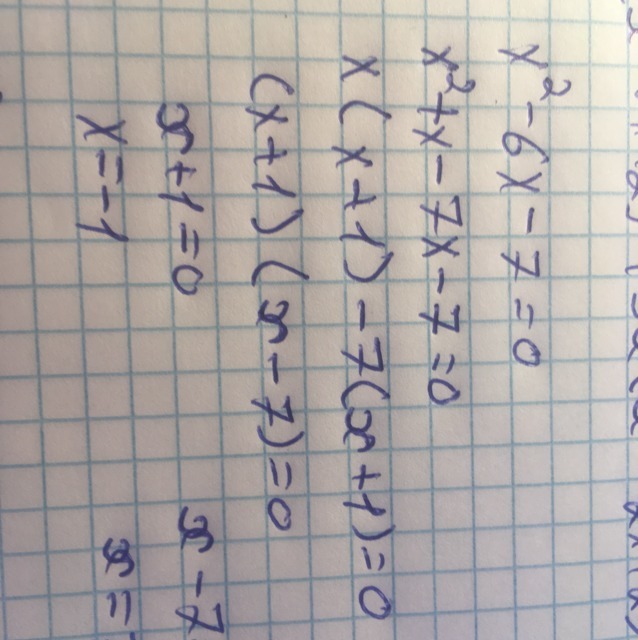 x²-6x-7=0
x²+x-7x-7=0
x(x+1)-7(x+1)=0
(x+1)(x-7)=0
x+1=0 x-7
x=-1 x=